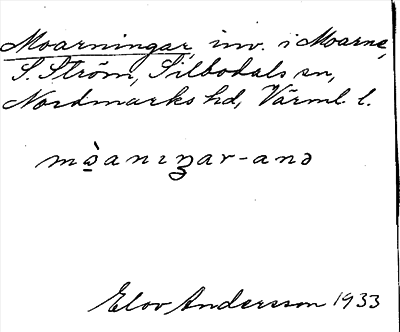 Moarningar, inv. i Moarne,
S. Ström, Silbodals sn,
Nordmarks hd, Värml. l.
mὼ̱anıŋar-anə
Elov Andersson 1933